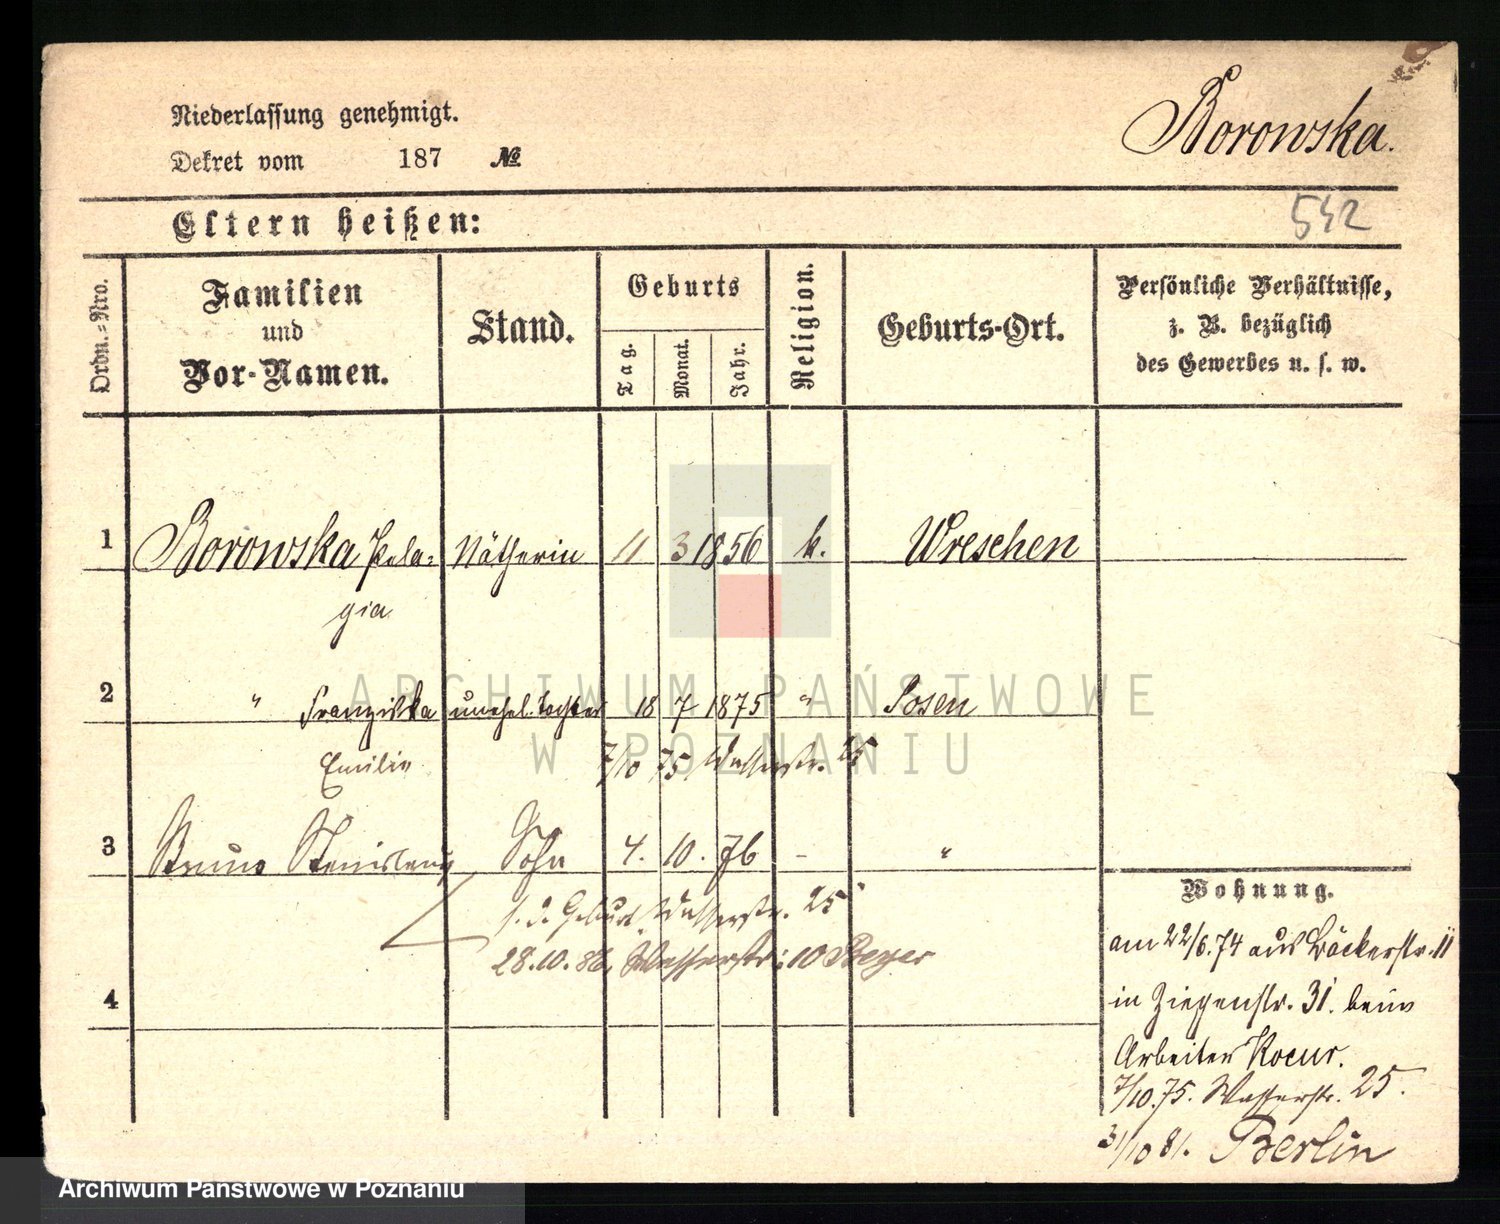 Niederlassung genehmigt.
Dekret vom 187 №
Borowska.
Eltern heißen:
542
Ordn.-Nro.
Familien
und
Vor-Namen.
Stand.
Geburts
Tag.
Monat.
Jahr.
Religion.
Geburts-Ort.
Persönliche Verhältnisse,
z. B. bezüglich
des Gewerbes u. s. w.
1 Borowska Pela= Nätherin 11 3 1856 k. Wreschen
gia
2 " Franziska unehel. Tochter 18 7 1875 " Posen
Emilie 7/10 75 Wasserstr. 25
3 Bruno Stanislaus Sohn 4. 10. 76 - "
s. d. Geburt Wasserstr. 25
28.10.86, Wasserstr: 10 Beyer
4
Wohnung.
am 22/6.74 aus Bäckerstr. 11
in Ziegenstr. 31. beim
Arbeiter Kocur.
7/10.75. Wasserstr. 25.
31/10 81. Berlin
ARCHIWUM PAŃSTWOWE
W POZNANIU
Archiwum Państwowe w Poznaniu